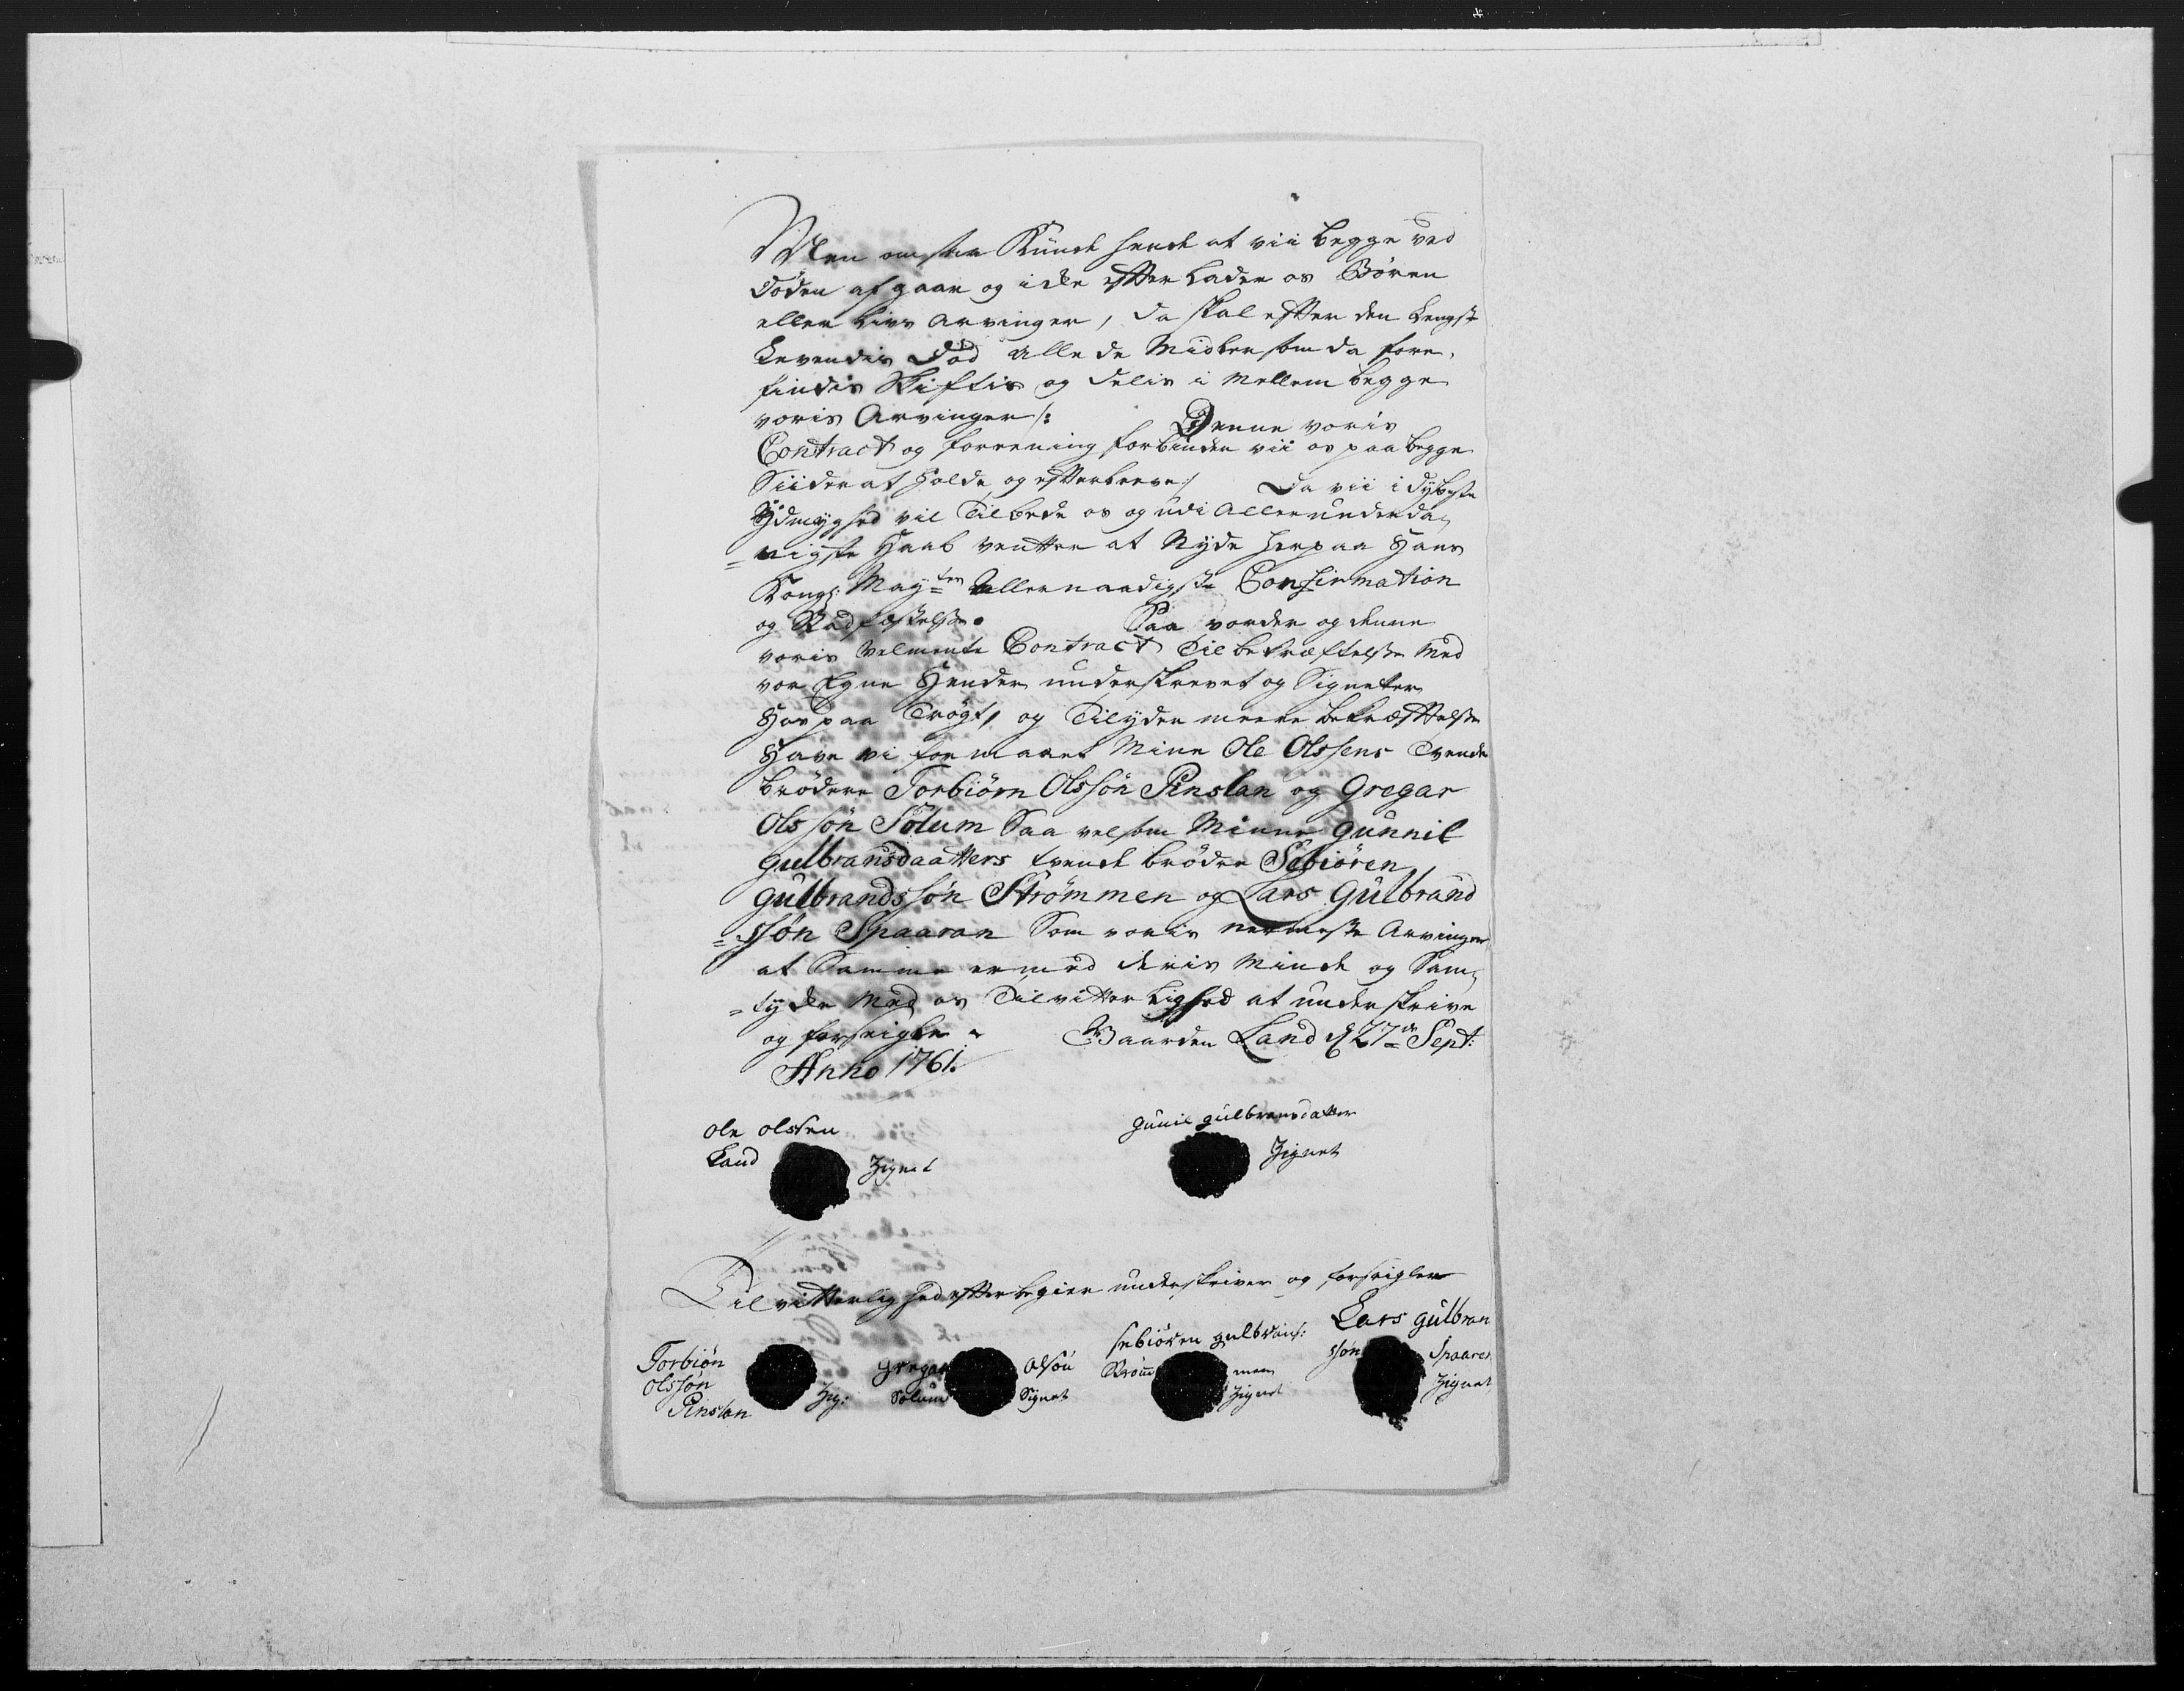 Men om saa Kunde hende at vii begge ved
Døden afgaar og icke efterlader os Børen
eller Livs Arvinger, da skal efter den Lengst
Levendis Død alle de Midler som da fore,
findis Skiftis og Delis i Mellem begge
voris Arvinger /: Denne voris
Contract og forrening forbinder vii os paa begge
Siider at holde og efterleve / Da vii i dybeste
Ydmyghed vil Tilbede os og udi Allerunderda,
=nigste Haab venter at Nyde herpaa Hans
Kongl: May=ten Allernaadigste Confirmation
og Stadfæstelse. Saa vorder og denne
voris velmente Contract Til bekræftelse Med
vor Egne Hender underskrevet og Signeter
Hos paa Trögt, og Til yder meere bekræftelse
Have vi formaaet Mine Ole Olssens Tvende
brödere Torbiörn Olssön Pinslan og Gregar
Olssön Solum Saa velsom Minne Gunnil
gulbransdaatters tvende brödre Sebiören
gulbrandssön Strömmen og Lars Gulbrand
=ssön Spaaran Som voris nermeste Arvinger
at Samme er med deris Minde og Sam,
=tyke Med os Til vitterlighed at underskrive
og forseigle. Gaarden Land d 27de Sept:
Anno 1761.
Ole olssen gunil gulbransdatter
Land Zignet Zignet
Til vitterlighed efter begier underskriver og forseigler
Torbiön Zig: gregar olsön sebiören gulbrans: Lars gulbran
olssön Solum Signet Ström men ssön Spaaren
Pinslan Zignet Zignet